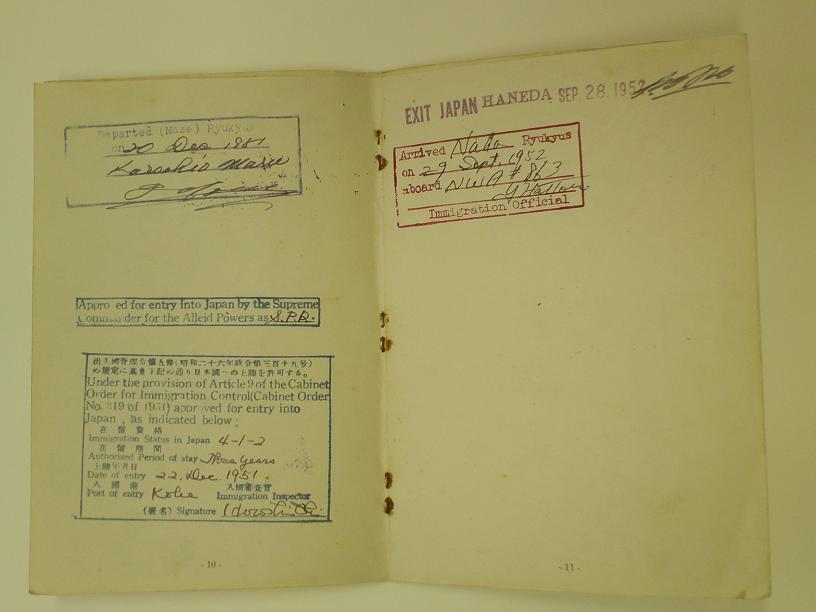 Departed (Naze) Ryukyus
on 20 Dec 1951
Kuroshio Maru
Appro ed for entry into Japan by the Supreme
Commander for the Alleid Powers as S.P.R.
出入國管理令第九條(昭和二十六年政令第三百十九号)
の規定に基き下記の通り日本國への上陸を許可する。
Under the provision of Article 9 of the Cabinet
Order for Immigration Control(Cabinet Order
No. 319 of 1951) approved for entry into
Japan, as indicated below;
在留資格
Immigration Status in Japan 4-1-2
在留期間
Authorized Period of stay Three Years
上陸年月日
Date of entry 22. Dec. 1951.
入國港 入國審査官
Port of entry Kobe Immigration Inspector
(署名) Signature Hiroshi
- 10 -
EXIT JAPAN HANEDA SEP. 28. 1952
Arrived Naha Ryukyus
on 29 Sept. 1952
aboard NWA # 863
Immigration Official
- 11 -